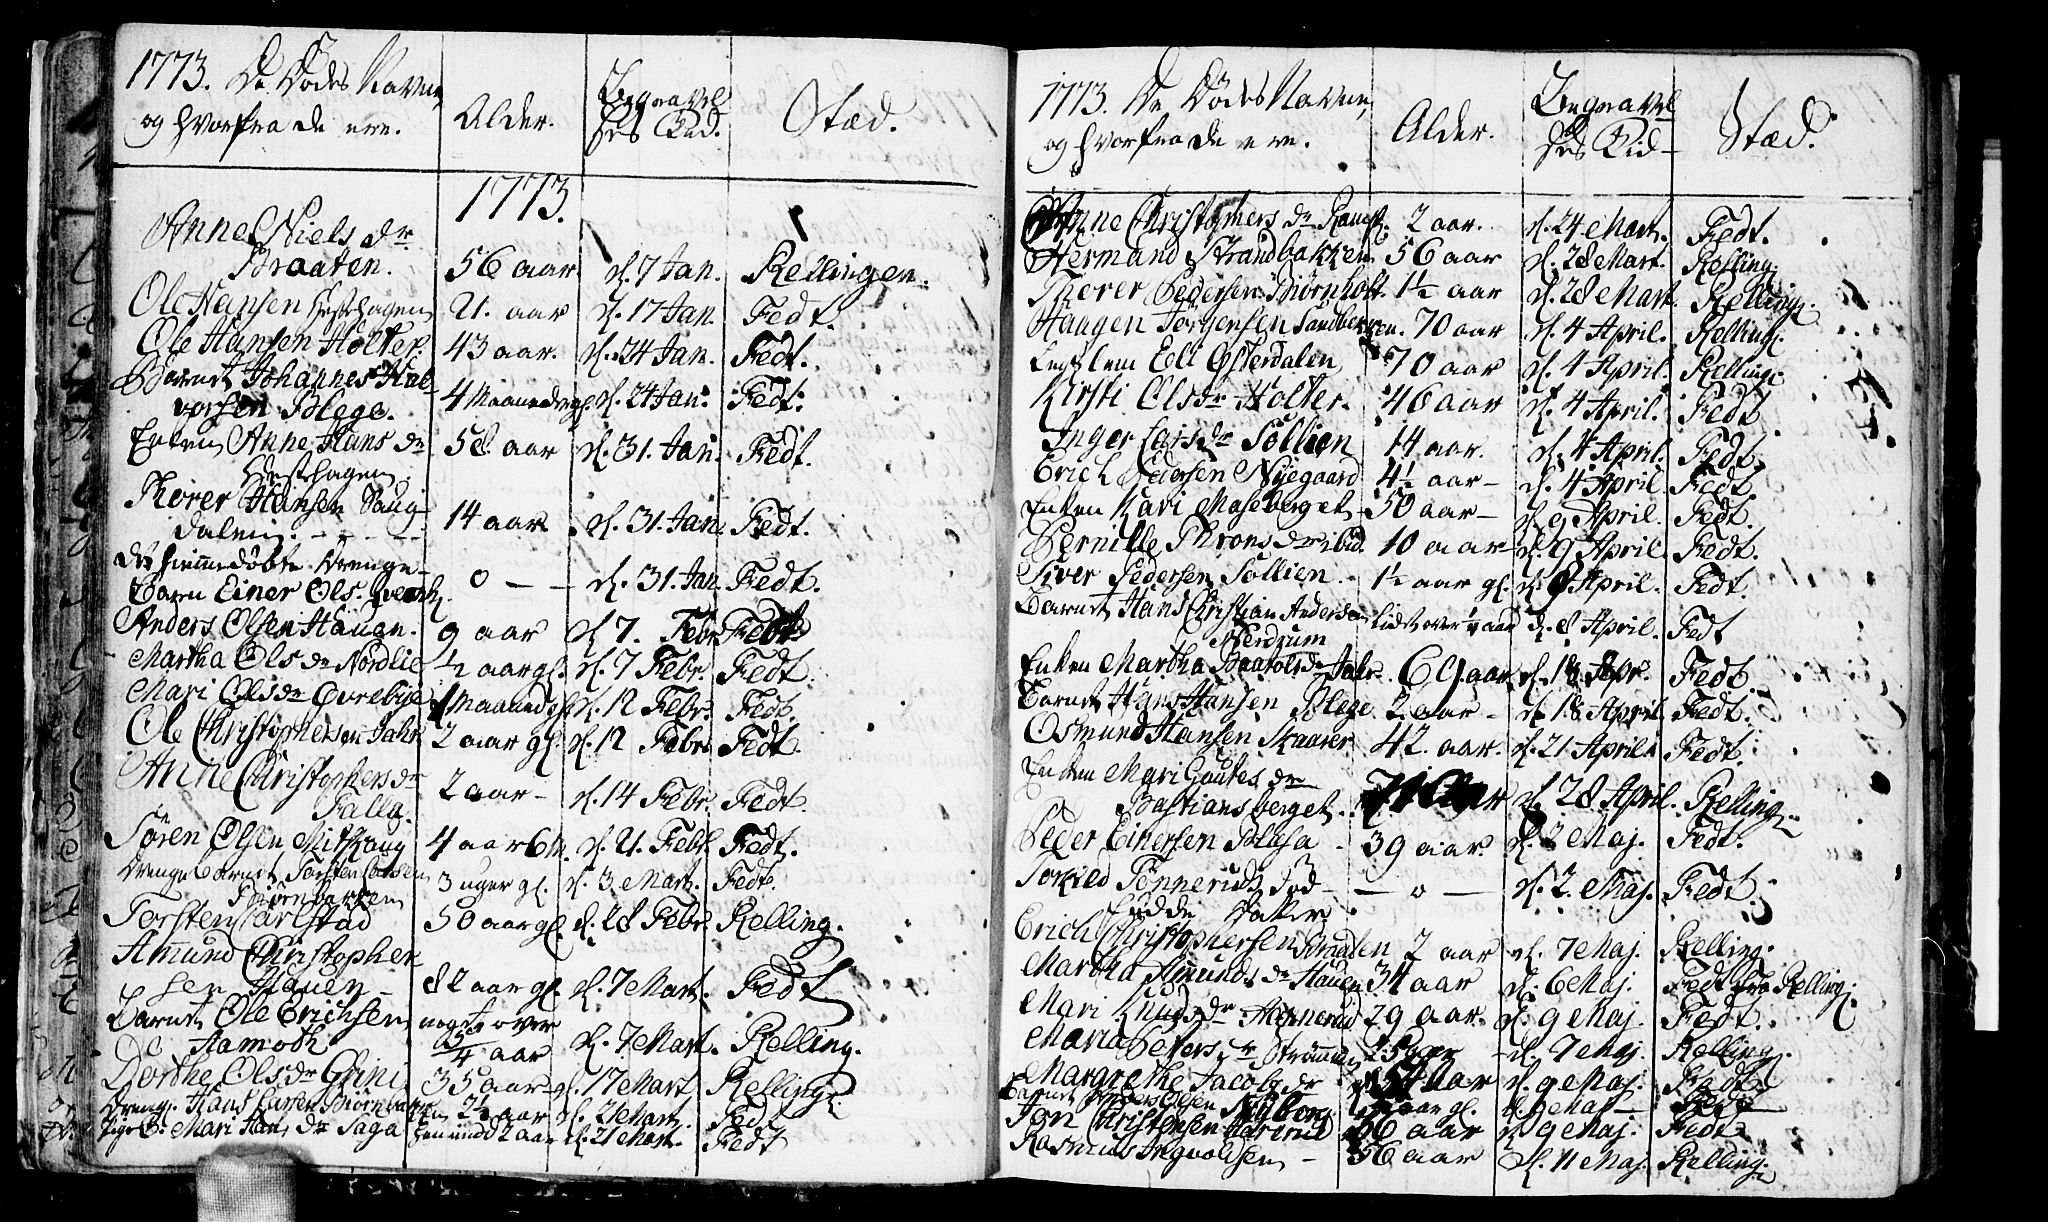 1773. De Dödes Navne, Alder. Begravel Stæd.
og hvorfra de ere. ses Tid.
1773.
Anne Niels dr
Braaten. 56 aar d. 7 Jan. Kellingen.
Ole Hansen Hesthagen 21. aar d. 17 Jan. Fedt.
Ole Hansen Holter. 43 aar. d. 24 Jan. Fedt.
Barnet Johannes Hal
vorsen Blege. 4 Maaneder gl. d. 24 Jan. Fedt.
Enken Anne Hans dr 58. aar d. 31. Jan. Fedt.
Hesthagen
Thorer Hansen Saug
dalen. 14 aar d. 31. Jan. Fedt.
det hiemmedöbte Drenge-
Barn Einer Ols. 0 - - d. 31. Jan Fedt.
Anders Olsen Haugn. 9 aar d. 7. Febr. Fedt.
Martha Ols dr Nordlie ½ aar gl. d. 7 Febr. Fedt.
Mari Ols dr Övrebye 1 Maaned gl. d. 12 Febr. Fedt.
Ole Christophersen Jahr 2 aar gl. d. 12 Febr. Fedt.
Anne Christophers dr
Falla. 2 aar - d. 14 Febr. Fedt.
Sören Olsen Mithaug 4 aar 6 M. d. 21. Febr. Fedt.
Drenge barnet Torsten Larsen
Biörnbakken 3 uger gl. d. 3 Mart. Fedt.
Torsten Carlstad 50 aar gl. d. 28 Febr. Relling.
Amund Christopher
sen Hauen - 82 aar gl. d. 7 Mart. Fedt
Barnet Ole Erichsen noget over
Aamoth ¾ aar d. 7 Mart. Relling.
Dorthe Ols dr Grini 35 aar gl. d. 17 Mart Relling.
Dreng. Hans Larsen Biörnbakken 2½ aar d. 21 Mart. Fedt
Pige B. Mari Hans dr Saga henimod 2 aar d. 21 Mart. Fedt
1773. De Dödes Navne, Alder. Begravel Stæd.
og hvorfra de ere. ses Tid -
Anne Christophers dr 2 aar. d. 24 Mart. Fedt.
Hermand Strandbakken 56 aar d. 28 Mart. Relling.
Thorer Pedersen Biörnholt. 1½ aar d. 28 Mart. Relling.
Haagen Jörgensen Sandbakken. 70 aar d. 4 April. Relling.
Eli Österdalen 70 aar d. 4 April. Relling.
Kirsti Ols dr Holter. 46 aar d. 4 April. Fedt
Inger Lars dr Sollien 14 aar. d. 4 April. Fedt.
Erich Pedersen Nyegaard 4½ aar - d. 4 April Fedt.
Enken Kari Maseberget 50 aar - d. 9 April. Fedt.
Pernille Throns dr ibid. 10 aar d. 9 April. Fedt.
Siver Pedersen Sollien. 1½ aar gl. d. 8 April. Fedt.
Barnet Hans Christian Andersen lidt over ½ aar d. 8 April. Fedt
Nerdrum
Enken Martha Jahr. 69 aar d. 18 Apr. Fedt.
Barnet Hans Hansen Blege 2 aar - d. 18 April Fedt.
Osmund Hansen Skaarer 42. aar. d. 21 April Fedt.
Enken Mari Gautes dr
Bastiansberget. d. 28 April. Relling.
Peder Einersen Blasa - 39 aar. d. 2 Maj. Fedt.
Tokied Tönneruds död - - 0 - d. 2. Maj. Fedt.
födde Datter.
Erich Christophersen Braaten 2 aar d. 7 Maj. Relling.
Martha Amunds dr Hauen 34 aar d. 6 Maj. Fedt fra Relling.
Mari Knuds dr 29 aar. d. 9 Maj. Fedt.
Maria Peters dr Strömmen d. 7 Maj. Relling.
Margrethe Jacobs dr 54 aar d. 9 Maj. Fedt
Barnet Anders Olsen Nyborg. aar gl. d. 9 Maj - Fedt
Jon Christensen 56 aar d. 9 Maj. Fedt
Rasmus Ingvoldsen - 56 aar d. 11 Maj. Relling.